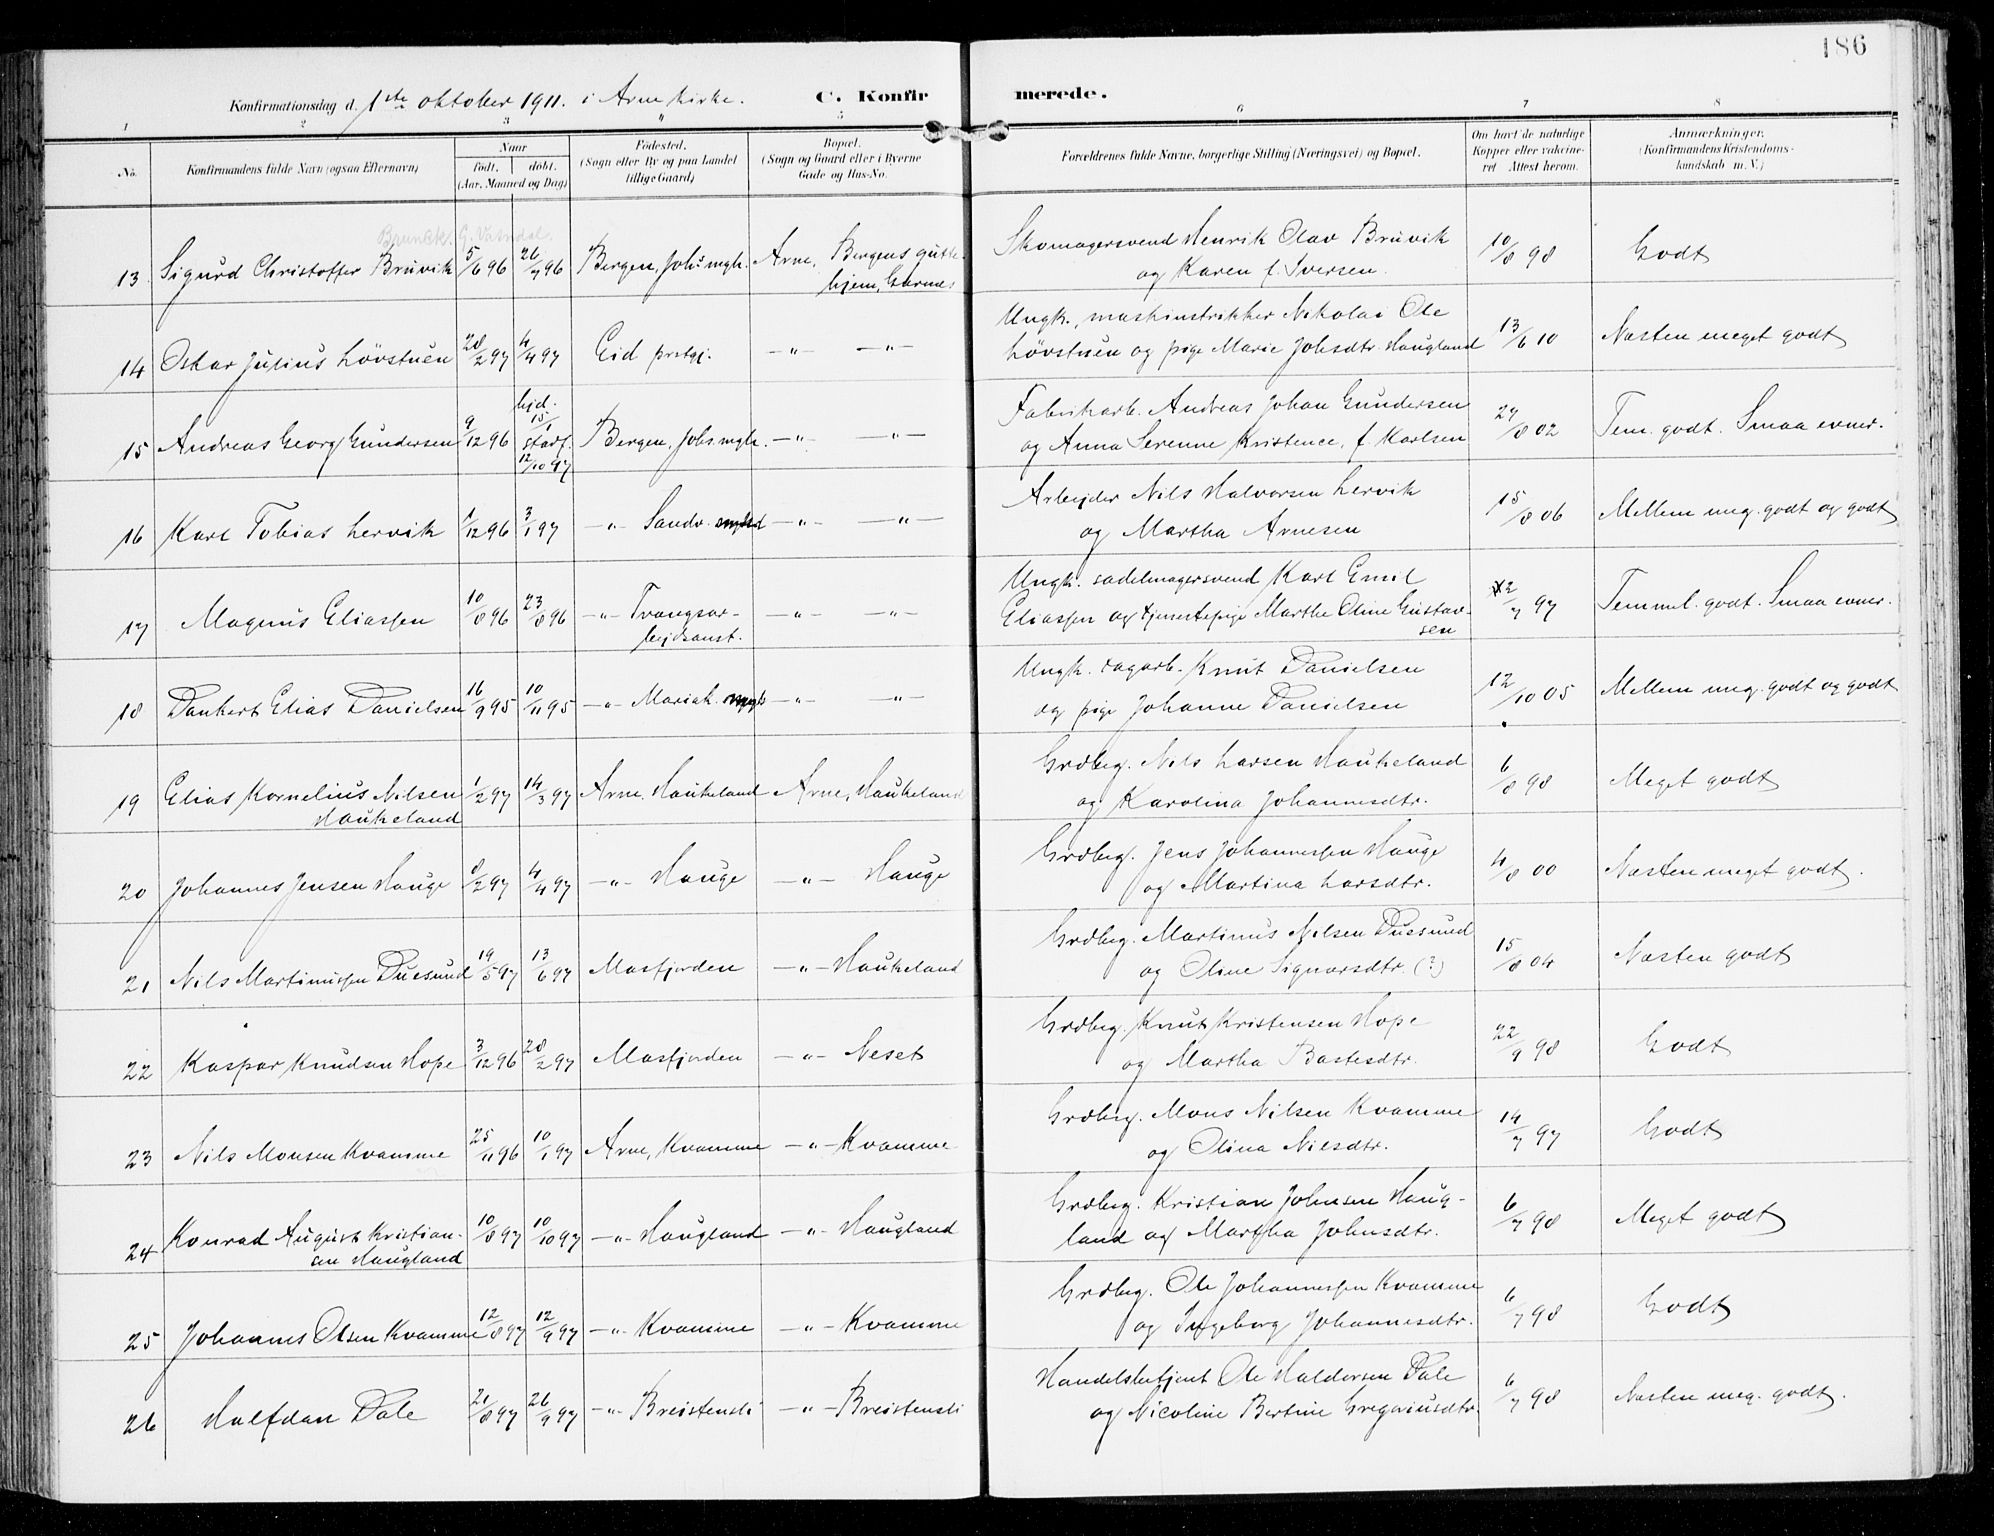 186
Konfirmationsdag d. 1ste oktober 1911. i Arne kirke. C. Konfirmerede.
1 2 3 4 5 6 7 8
No. Konfirmandens fulde Navn (ogsaa Efternavn) Naar født. døbt. (Aar, Maaned og Dag) Fødested. (Sogn eller By og paa Landet tillige Gaard) Bopæl. (Sogn og Gaard eller i Byerne Gade og Hus-No. Forældrenes fulde Navne, borgerlige Stilling (Næringsvei) og Bopæl. Om havt de naturlige Kopper eller vakcineret Attest herom. Anmærkninger. (Konfirmandens Kristendomskundskab m. V.)
13 Sigurd Christoffer Bruvik 5/6 96 26/7 96 Bergen, Johs mgh. Arne, Bergens gutte- Skomagersvend Henrik Olav Bruvik 10/8 98 Godt
hjem, Garnes og Karen f. Iversen.
14 Oskar Julius Løvstuen 28/2 97 4/4 97 Eid prstgj. —"— —"— Ungk., maskinstrikker Nikolai Ole 13/6 10 Næsten meget godt
Løvstuen og pige Marie Johsdtr. Haugland
15 Andreas Georg Gundersen 9/12 96 hjd. 15/1 stadf. 12/10 97 Bergen, Johs mgh. —"— —"— Fabrikarb. Andreas Johan Gundersen 27/8 02 Tem. godt. Smaa evner.
og Anna Serenne Kristence, f. Karlsen
16 Karl Tobias Lervik 1/12 96 3/1 97 —"— Sandv. —"— —"— Arbejder Nils Halvorsen Lervik 15/8 06 Mellem meg. godt og godt
og Martha Arnesen
17 Magnus Eliassen 10/8 96 23/8 96 —"— Tvangsar- —"— —"— Ungk. sadelmagersvend Karl Emil 2/7 97 Temmel. godt. Smaa evner.
bejdsanst. Eliassen og tjenestepige Marthe Oline Gustav-
sen
18 Dankert Elias Danielsen 16/9 95 10/11 95 —"— Mariak. —"— —"— Ungk. dagarb. Knut Danielsen 12/10 05 Mellem meg. godt og godt
og pige Johanne Danielsen
19 Elias Kornelius Nilsen 1/2 97 14/3 97 Arne, Haukeland Arne, Haukeland Grdbrg. Nils Larsen Haukeland 6/8 98 Meget godt
Haukeland og Karolina Johannesdtr.
20 Johannes Jensen Hauge 8/2 97 4/4 97 —"— Hauge —"— Hauge Grdbrg. Jens Johannessen Hauge 4/8 00 Næsten meget godt.
og Martina Larsdtr.
21 Nils Martinussen Duesund 19/5 97 13/6 97 Masfjorden —"— Haukeland Grdbrg. Martinus Nilsen Duesund 15/8 04 Næsten godt
og Oline Signarsdtr. (?)
22 Kaspar Knudsen Hope 3/12 96 28/2 97 Masfjorden —"— Neset Grdbrg. Knut Kristensen Hope 22/9 98 Godt
og Martha Bastesdtr.
23 Nils Monsen Kvamme 25/11 96 10/1 97 Arne, Kvamme —"— Kvamme Grdbrg. Mons Nilsen Kvamme 14/7 97 Godt
og Olina Nilsdtr.
24 Konrad August Kristian- 10/8 97 10/10 97 —"— Haugland —"— Haugland Grdbrg. Kristian Johnsen Haug- 6/7 98 Meget godt
sen Haugland land og Martha Johnsdtr.
25 Johannes Olsen Kvamme 12/8 97 12/9 97 —"— Kvamme —"— Kvamme Grdbrg. Ole Johannessen Kvamme 6/7 98 Godt
og Ingeborg Johannesdtr.
26 Halfdan Dale 21/8 97 26/9 97 —"— Breistensli —"— Breistensli Handelsbetjent Ole Haldorsen Dale 6/7 98 Næsten meg. godt.
og Nicoline Bertine Gregoriusdtr.